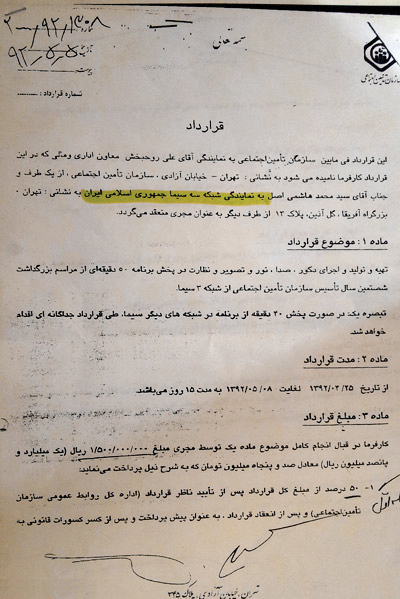 بسمه تعالی
شماره
تاریخ
۹۲/۵/۵
پیوست
سازمان تأمین اجتماعی
شماره قرارداد: ........
قرارداد
این قرارداد فی مابین سازمان تأمین‌اجتماعی به نمایندگی آقای علی روحبخش معاون اداری ومالی که در این
قرارداد کارفرما نامیده می شود به نشانی : تهران - خیابان آزادی ، سازمان تأمین اجتماعی ، از یک طرف و
جناب آقای سید محمد هاشمی اصل به نمایندگی شبکه سه سیما جمهوری اسلامی ایران به نشانی : تهران ،
بزرگراه آفریقا ، گل آذین، پلاک ۱۲ از طرف دیگر به عنوان مجری منعقد می‌گردد.
ماده ۱: موضوع قرارداد
تهیه و تولید و اجرای دکور ، صدا ، نور و تصویر و نظارت در پخش برنامه ۵۰ دقیقه‌ای از مراسم بزرگداشت
شصتمین سال تأسیس سازمان تأمین اجتماعی از شبکه ۳ سیما.
تبصره یک: در صورت پخش ۲۰ دقیقه از برنامه در شبکه های دیگر سیما، طی قرارداد جداگانه ای اقدام
خواهد شد.
ماده ۲: مدت قرارداد
از تاریخ ۱۳۹۲/۰۴/۲۵ لغایت ۱۳۹۲/۰۵/۰۸ به مدت ۱۵ روز می‌باشد.
ماده ۳: مبلغ قرارداد
کارفرما در قبال انجام کامل موضوع ماده یک توسط مجری مبلغ ۱/۵۰۰/۰۰۰/۰۰۰ ریال (یک میلیارد و
پانصد میلیون ریال) معادل صد و پنجاه میلیون تومان که به شرح ذیل پرداخت می‌نماید:
۱- ۵۰ درصد از مبلغ کل قرارداد پس از تأیید ناظر قرارداد (اداره کل روابط عمومی سازمان
تأمین‌اجتماعی) و پس از انعقاد قرارداد ، به عنوان پیش پرداخت و پس از کسر کسورات قانونی به
تهران، خیابان آزادی، پلاک ۳۴۵